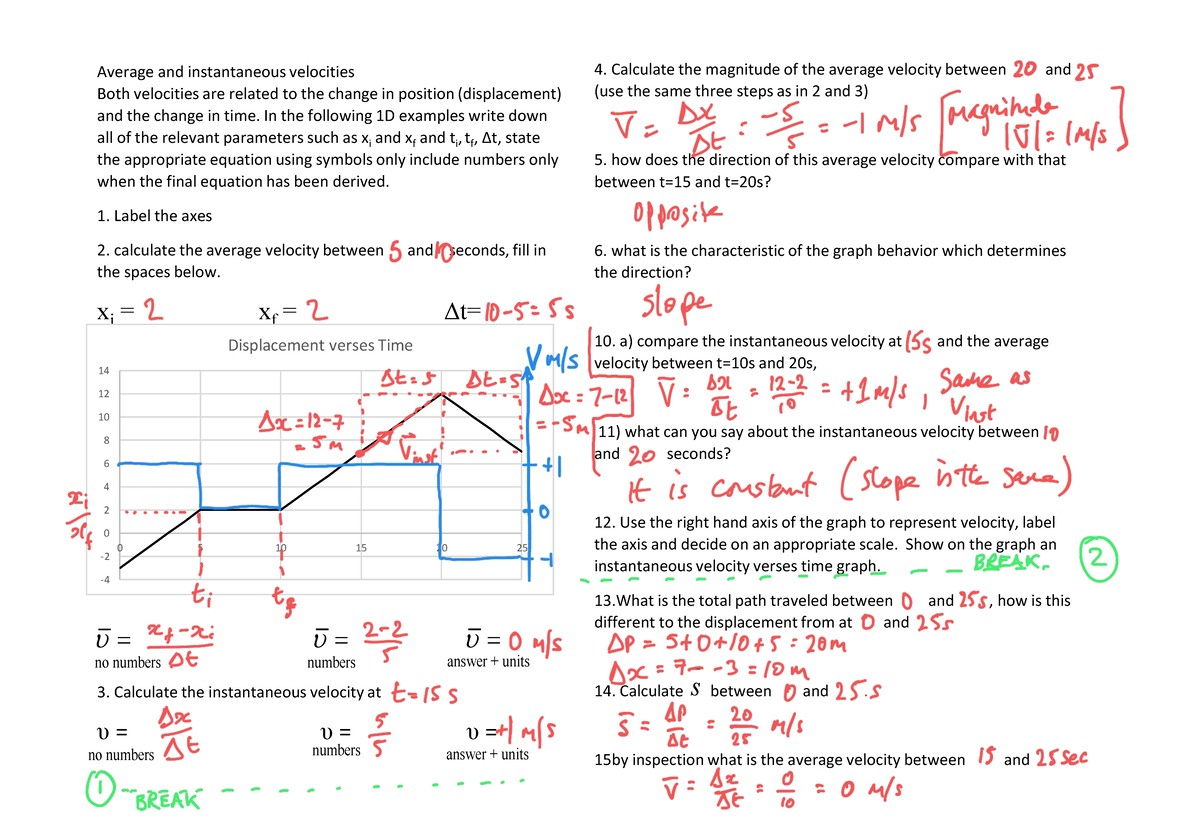 Average and instantaneous velocities
Both velocities are related to the change in position (displacement)
and the change in time. In the following 1D examples write down
all of the relevant parameters such as xᵢ and x_f and tᵢ, t_f, Δt, state
the appropriate equation using symbols only include numbers only
when the final equation has been derived.
1. Label the axes
2. calculate the average velocity between 5 and 10 seconds, fill in
the spaces below.
xᵢ = 2 x_f = 2 Δt= 10-5= 5 s
Displacement verses Time
V m/s
14
12
10
8
6
4
2
0
-2
-4
0 5 10 15 20 25
Δt=5 Δt=5
Δx=12-7
= 5 m
V⃗inst
Δx = 7-12
= -5m
+1
0
-1
xi
xf
ti tf
ῡ = xf-xi / Δt ῡ = 2-2 / 5 ῡ = 0 m/s
no numbers numbers answer + units
3. Calculate the instantaneous velocity at t=15 s
υ = Δx / Δt υ = 5 / 5 υ =+1 m/s
no numbers numbers answer + units
1 BREAK
4. Calculate the magnitude of the average velocity between 20 and 25
(use the same three steps as in 2 and 3)
V̅ = Δx / Δt = -5 / 5 = -1 m/s [magnitude |V̅|= 1m/s]
5. how does the direction of this average velocity compare with that
between t=15 and t=20s?
opposite
6. what is the characteristic of the graph behavior which determines
the direction?
slope
10. a) compare the instantaneous velocity at 15s and the average
velocity between t=10s and 20s,
V̅ = Δx / Δt = 12-2 / 10 = +1m/s, Same as Vinst
11) what can you say about the instantaneous velocity between 10
and 20 seconds?
It is constant (slope is the same)
12. Use the right hand axis of the graph to represent velocity, label
the axis and decide on an appropriate scale. Show on the graph an
instantaneous velocity verses time graph. BREAK. 2
13.What is the total path traveled between 0 and 25s, how is this
different to the displacement from at 0 and 25s
ΔP = 5+0+10+5 = 20m
Δx = 7 - -3 = 10 m
14. Calculate S between 0 and 25.s
S̅ = ΔP / Δt = 20 / 25 m/s
15by inspection what is the average velocity between 15 and 25 sec
V̅ = Δx / Δt = 0 / 10 = 0 m/s